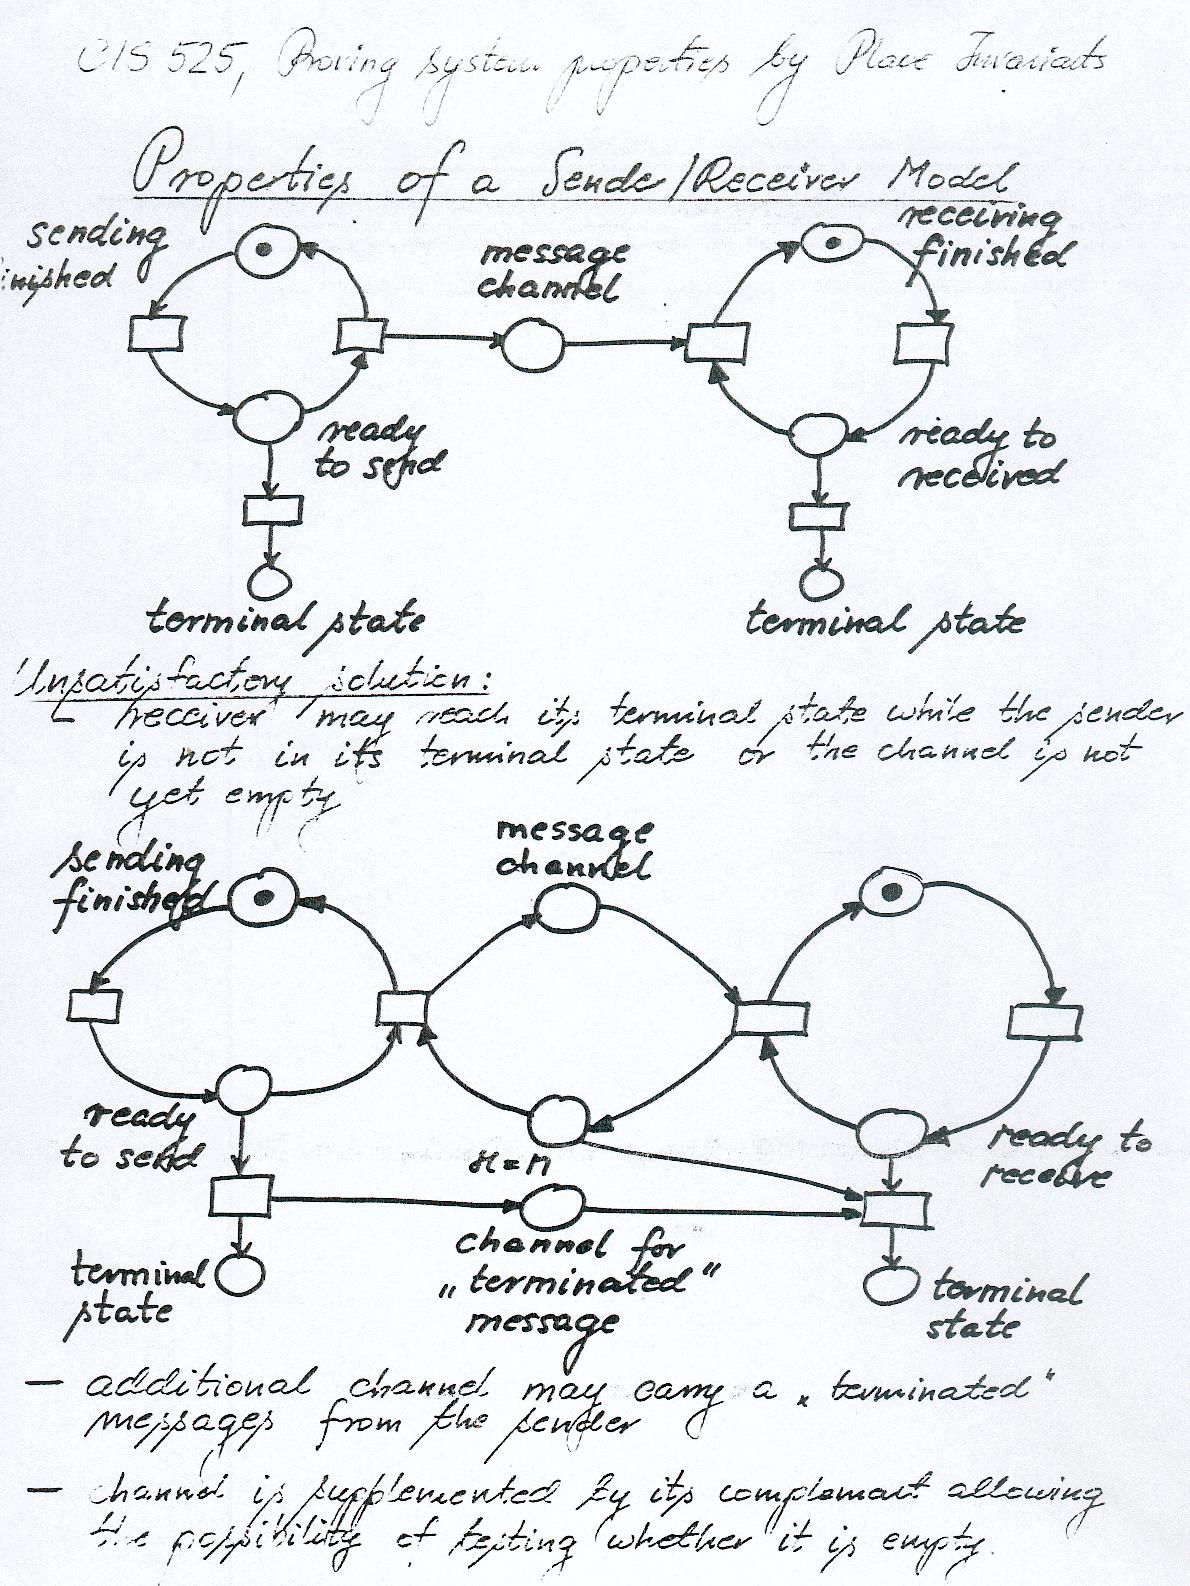 CIS 525, Proving system properties by Place Invariants
Properties of a Sende/Receiver Model
sending
inished
message
channel
receiving
finished
ready
to send
ready to
received
terminal state
terminal state
Unsatisfactory solution:
receiver may reach its terminal state while the sender
is not in its terminal state or the channel is not
yet empty
sending
finished
message
channel
ready
to send
ready to
receive
terminal
state
channel for
„terminated“
message
terminal
state
— additional channel may carry a „terminated“
messages from the sender
— channel is supplemented by its complement allowing
the possibility of testing whether it is empty.